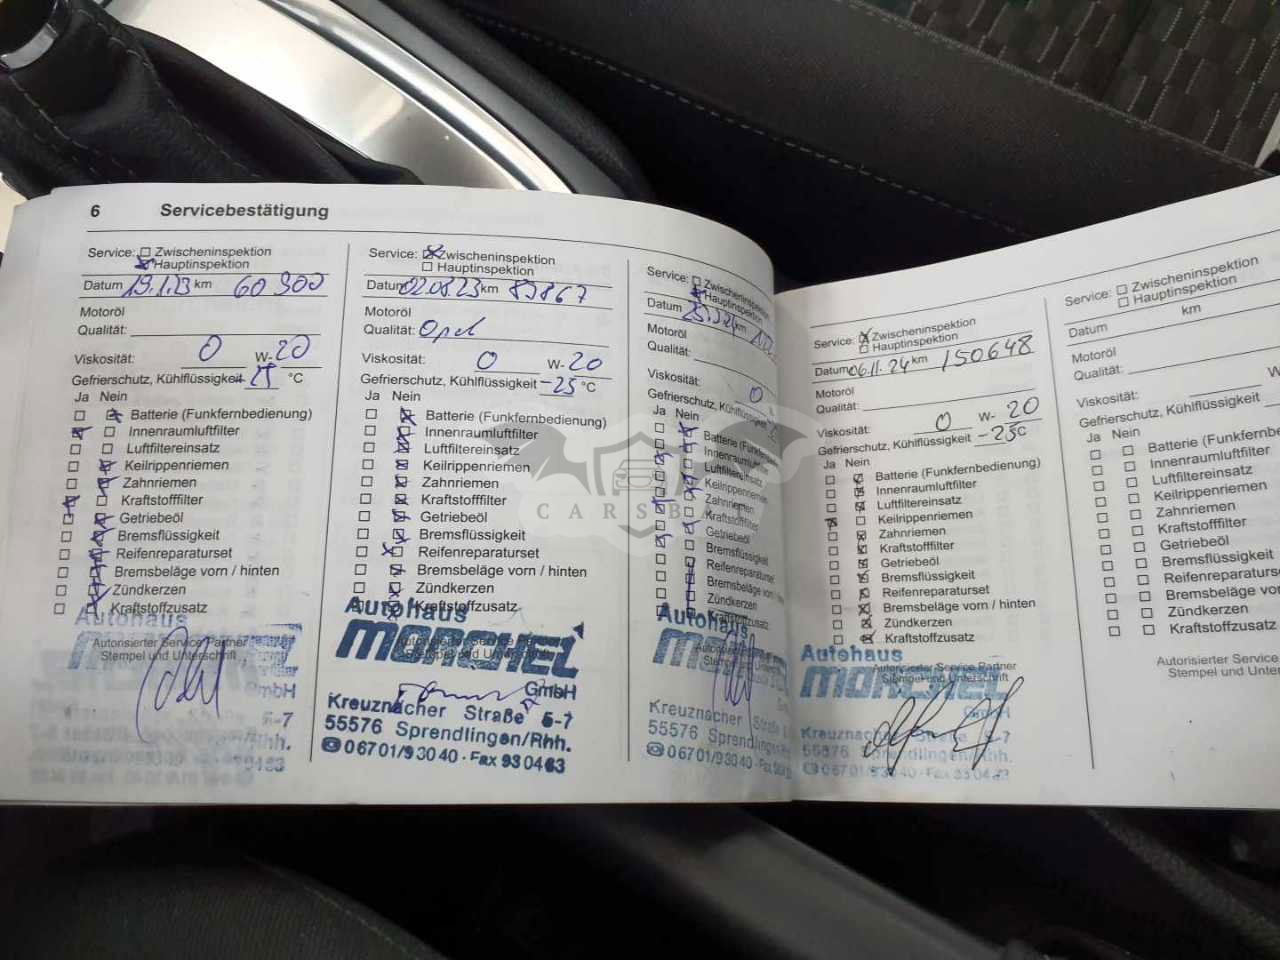 6 Servicebestätigung
Service: Zwischeninspektion
Hauptinspektion
Datum 19.1.23 km 60 300
Motoröl
Qualität:
Viskosität: 0 W- 20
Gefrierschutz, Kühlflüssigkeit - 25 °C
Ja Nein
Batterie (Funkfernbedienung)
Innenraumluftfilter
Luftfiltereinsatz
Keilrippenriemen
Zahnriemen
Kraftstofffilter
Getriebeöl
Bremsflüssigkeit
Reifenreparaturset
Bremsbeläge vorn / hinten
Zündkerzen
Kraftstoffzusatz
Autohaus
Autorisierter Service Partner
Stempel und Unterschrift
GmbH
5-7
Service: Zwischeninspektion
Hauptinspektion
Datum 02.08.23 km 83867
Motoröl
Qualität: Opel
Viskosität: 0 W- 20
Gefrierschutz, Kühlflüssigkeit -25 °C
Ja Nein
Batterie (Funkfernbedienung)
Innenraumluftfilter
Luftfiltereinsatz
Keilrippenriemen
Zahnriemen
Kraftstofffilter
Getriebeöl
Bremsflüssigkeit
Reifenreparaturset
Bremsbeläge vorn / hinten
Zündkerzen
Kraftstoffzusatz
Autohaus
Autorisierter Service Partner
Stempel und Unterschrift
GmbH
Kreuznacher Straße 5-7
55576 Sprendlingen/Rhh.
06701/93040 · Fax 930463
Service: Zwischeninspektion
Hauptinspektion
Datum km
Motoröl
Qualität:
Viskosität: 0
Gefrierschutz, Kühlflüssigkeit
Ja Nein
Batterie
Innenraumluftfilter
Luftfiltereinsatz
Keilrippenriemen
Zahnriemen
Kraftstofffilter
Getriebeöl
Bremsflüssigkeit
Reifenreparaturset
Bremsbeläge vorn / hinten
Zündkerzen
Kraftstoffzusatz
Autohaus
Stempel und
Kreuznacher Straße
55576 Sprendlingen
06701/93040 · Fax
CARSBA
Service: Zwischeninspektion
Hauptinspektion
Datum 06.11.24 km 150648
Motoröl
Qualität:
Viskosität: 0 W- 20
Gefrierschutz, Kühlflüssigkeit -25 °C
Ja Nein
Batterie (Funkfernbedienung)
Innenraumluftfilter
Luftfiltereinsatz
Keilrippenriemen
Zahnriemen
Kraftstofffilter
Getriebeöl
Bremsflüssigkeit
Reifenreparaturset
Bremsbeläge vorn / hinten
Zündkerzen
Kraftstoffzusatz
Autohaus
Autorisierter Service Partner
Stempel und Unterschrift
GmbH
Kreuznacher Straße 5-7
55576 Sprendlingen/Rhh.
06701/93040 · Fax 930463
Service: Zwischeninspektion
Hauptinspektion
Datum km
Motoröl
Qualität:
Viskosität: W
Gefrierschutz, Kühlflüssigkeit
Ja Nein
Batterie (Funkfernbe
Innenraumluftfilter
Luftfiltereinsatz
Keilrippenriemen
Zahnriemen
Kraftstofffilter
Getriebeöl
Bremsflüssigkeit
Reifenreparaturse
Bremsbeläge vor
Zündkerzen
Kraftstoffzusatz
Autorisierter Service
Stempel und Unters